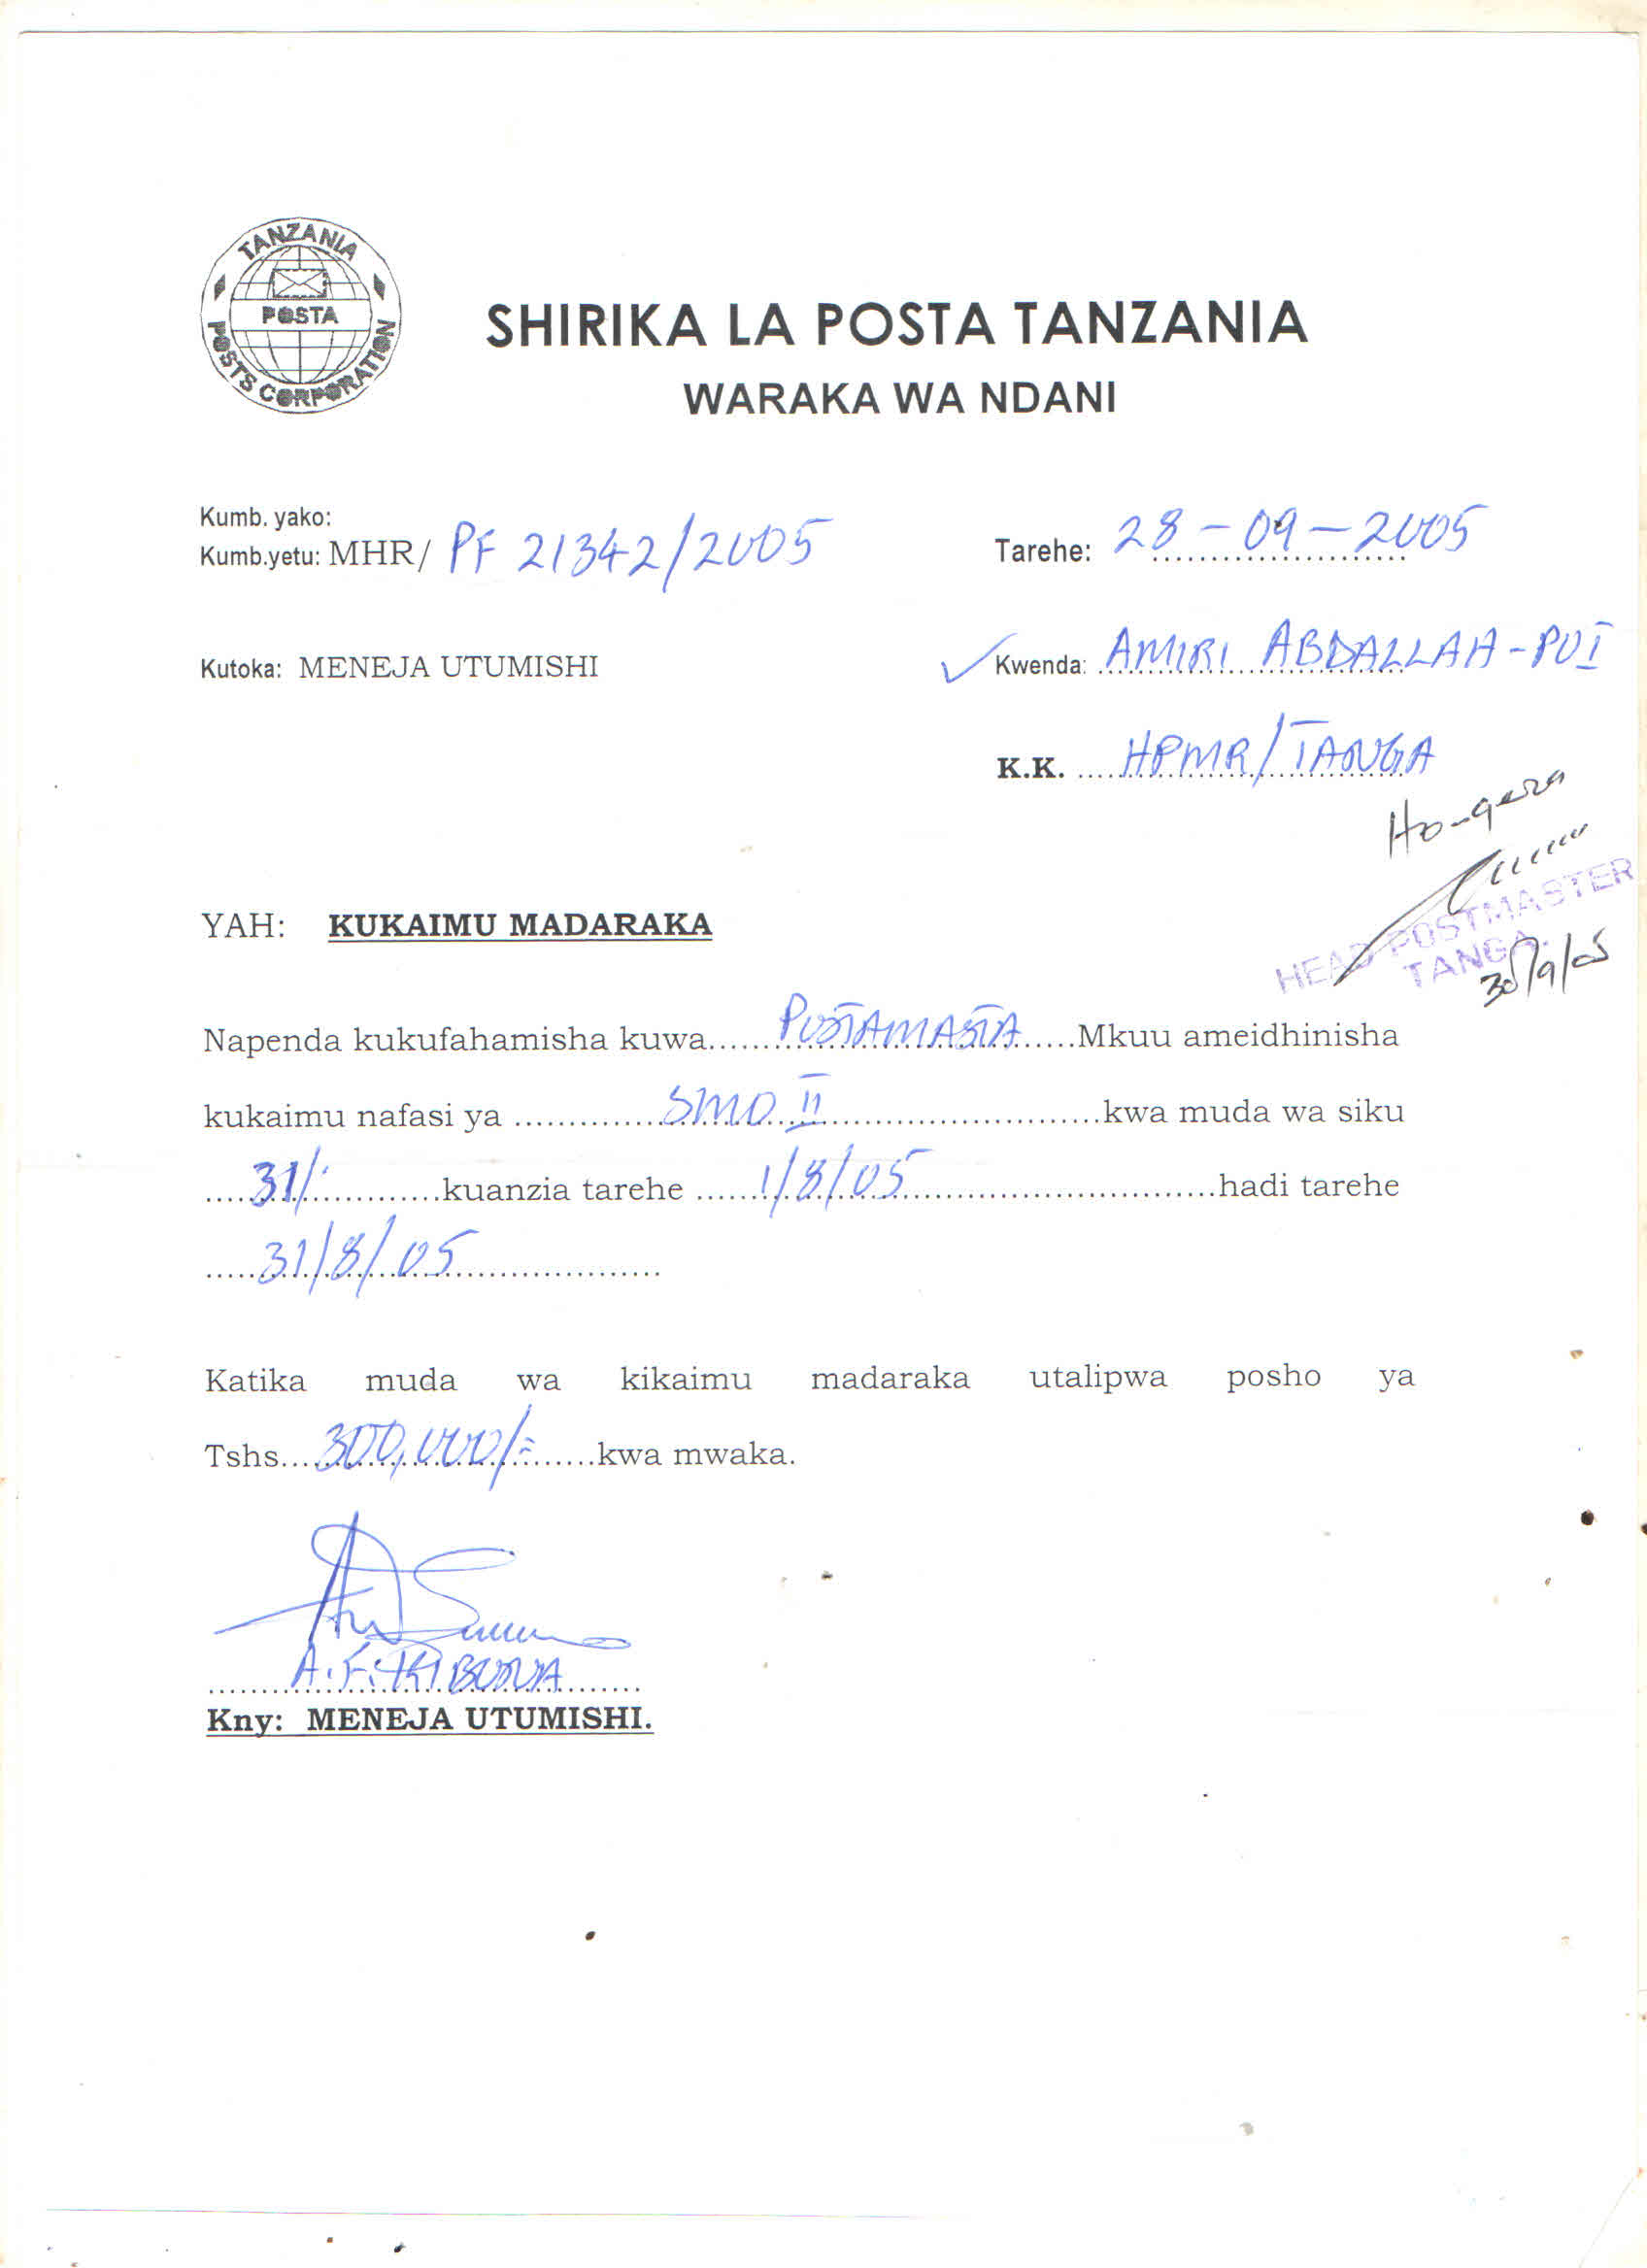 TANZANIA
POSTA
POSTS CORPORATION
SHIRIKA LA POSTA TANZANIA
WARAKA WA NDANI
Kumb. yako:
Kumb.yetu: MHR/ PF 21342/2005
Tarehe: 28-09-2005
Kutoka: MENEJA UTUMISHI
Kwenda: AMIRI ABDALLAH-POI
K.K. HPMR/TANGA
Hongera
HEAD POSTMASTER
TANGA.
30/9/05
YAH: KUKAIMU MADARAKA
Napenda kukufahamisha kuwa......POSTAMASTA......Mkuu ameidhinisha
kukaimu nafasi ya ......SMO II......kwa muda wa siku
......31/.......kuanzia tarehe ......1/8/05......hadi tarehe
......31/8/05......
Katika muda wa kikaimu madaraka utalipwa posho ya
Tshs......300,000/=......kwa mwaka.
Kny: MENEJA UTUMISHI.